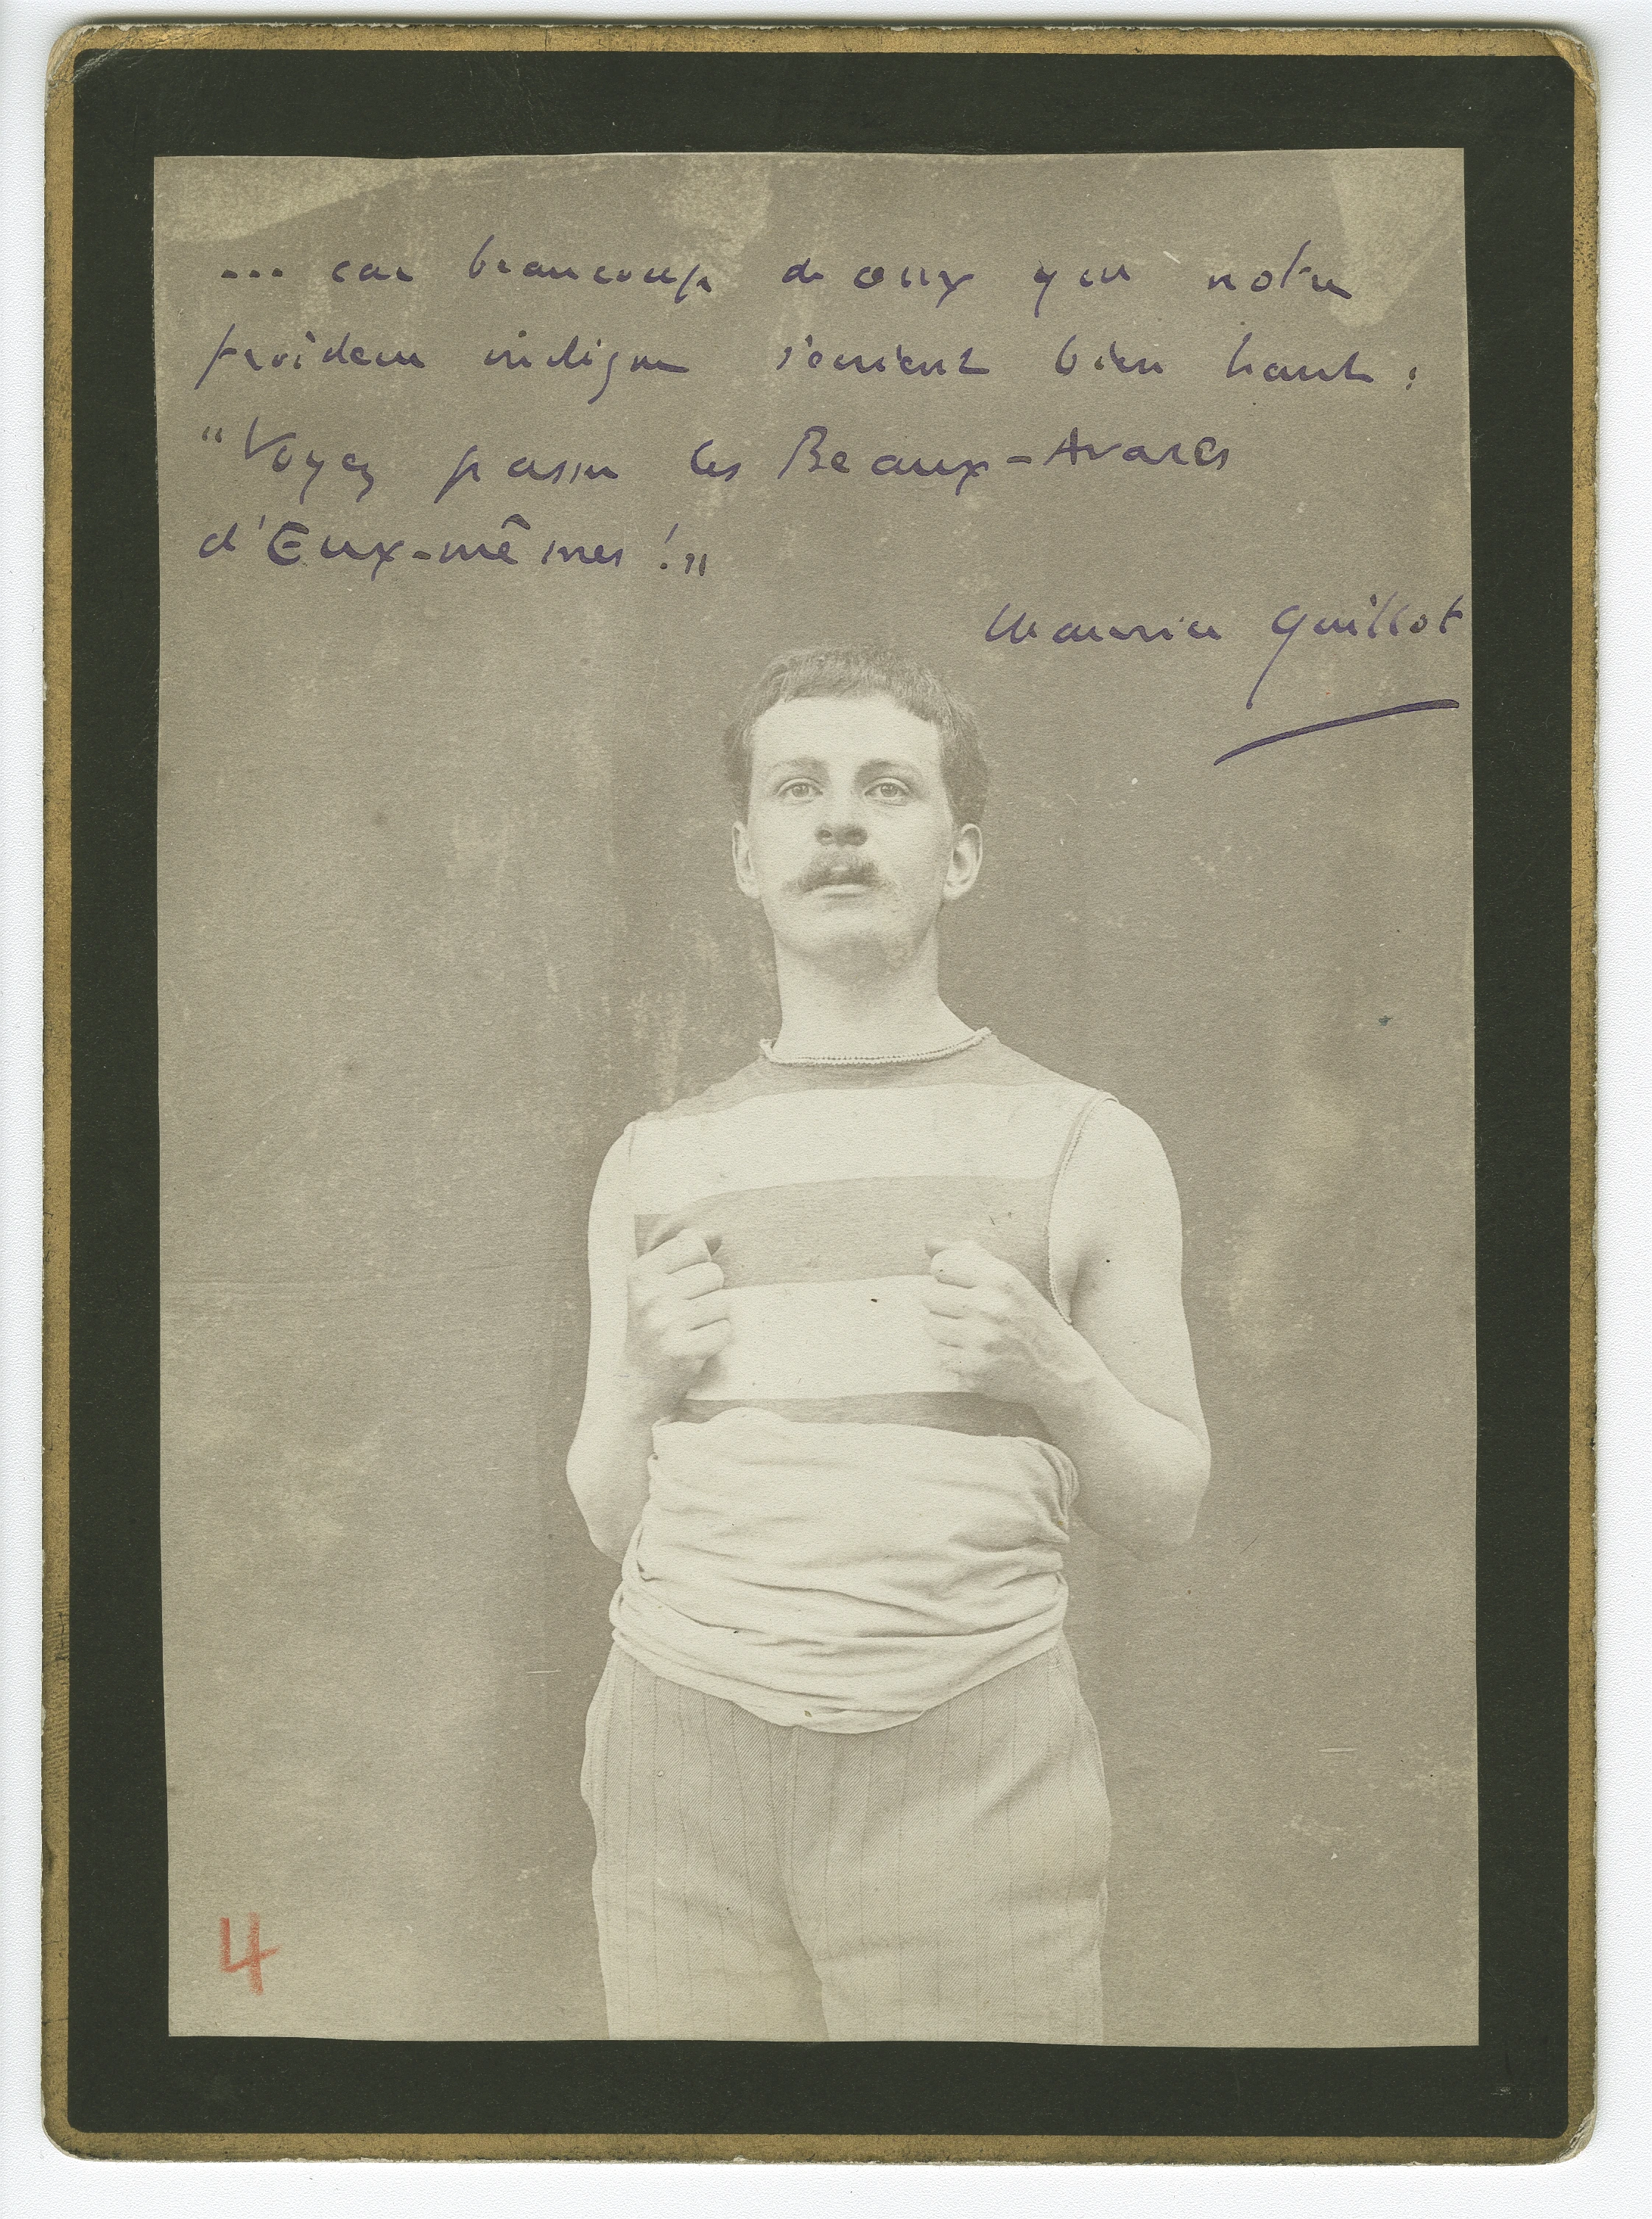 ... car beaucoup de ceux que notre
froideur indigne s'écrient bien haut :
"Voyez passer les Beaux-Avares
d'Eux-mêmes !"
Maurice Guillot
4